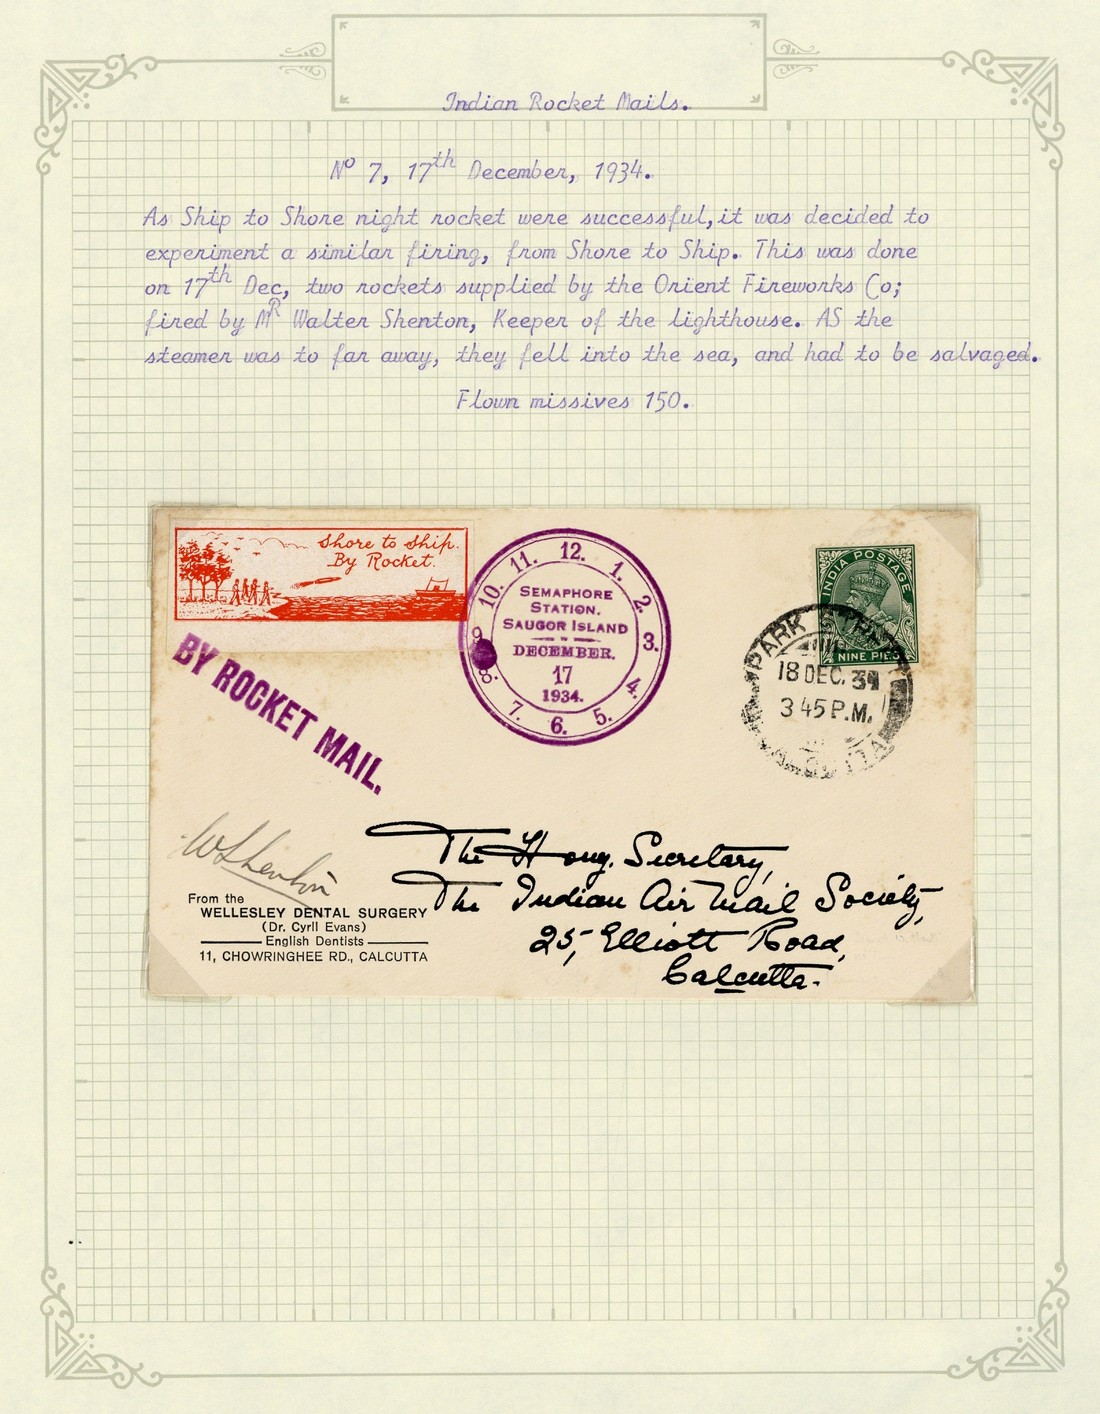 Indian Rocket Mails.
No 7, 17th December, 1934.
As Ship to Shore night rocket were successful, it was decided to
experiment a similar firing, from Shore to Ship. This was done
on 17th Dec, two rockets supplied by the Orient Fireworks Co;
fired by MR Walter Shenton, Keeper of the lighthouse. AS the
steamer was to far away, they fell into the sea, and had to be salvaged.
Flown missives 150.
Shore to Ship.
By Rocket.
BY ROCKET MAIL.
12. 1. 2. 3. 4. 5. 6. 7. 8. 9. 10. 11.
SEMAPHORE
STATION.
SAUGOR ISLAND
DECEMBER.
17
1934.
INDIA POSTAGE
NINE PIES
PARK STREET
18 DEC. 34
3 45 P.M.
CALCUTTA
WShenton
The Hony. Secretary,
The Indian Air Mail Society,
25, Elliott Road,
Calcutta.
From the
WELLESLEY DENTAL SURGERY
(Dr. Cyril Evans)
English Dentists
11, CHOWRINGHEE RD., CALCUTTA